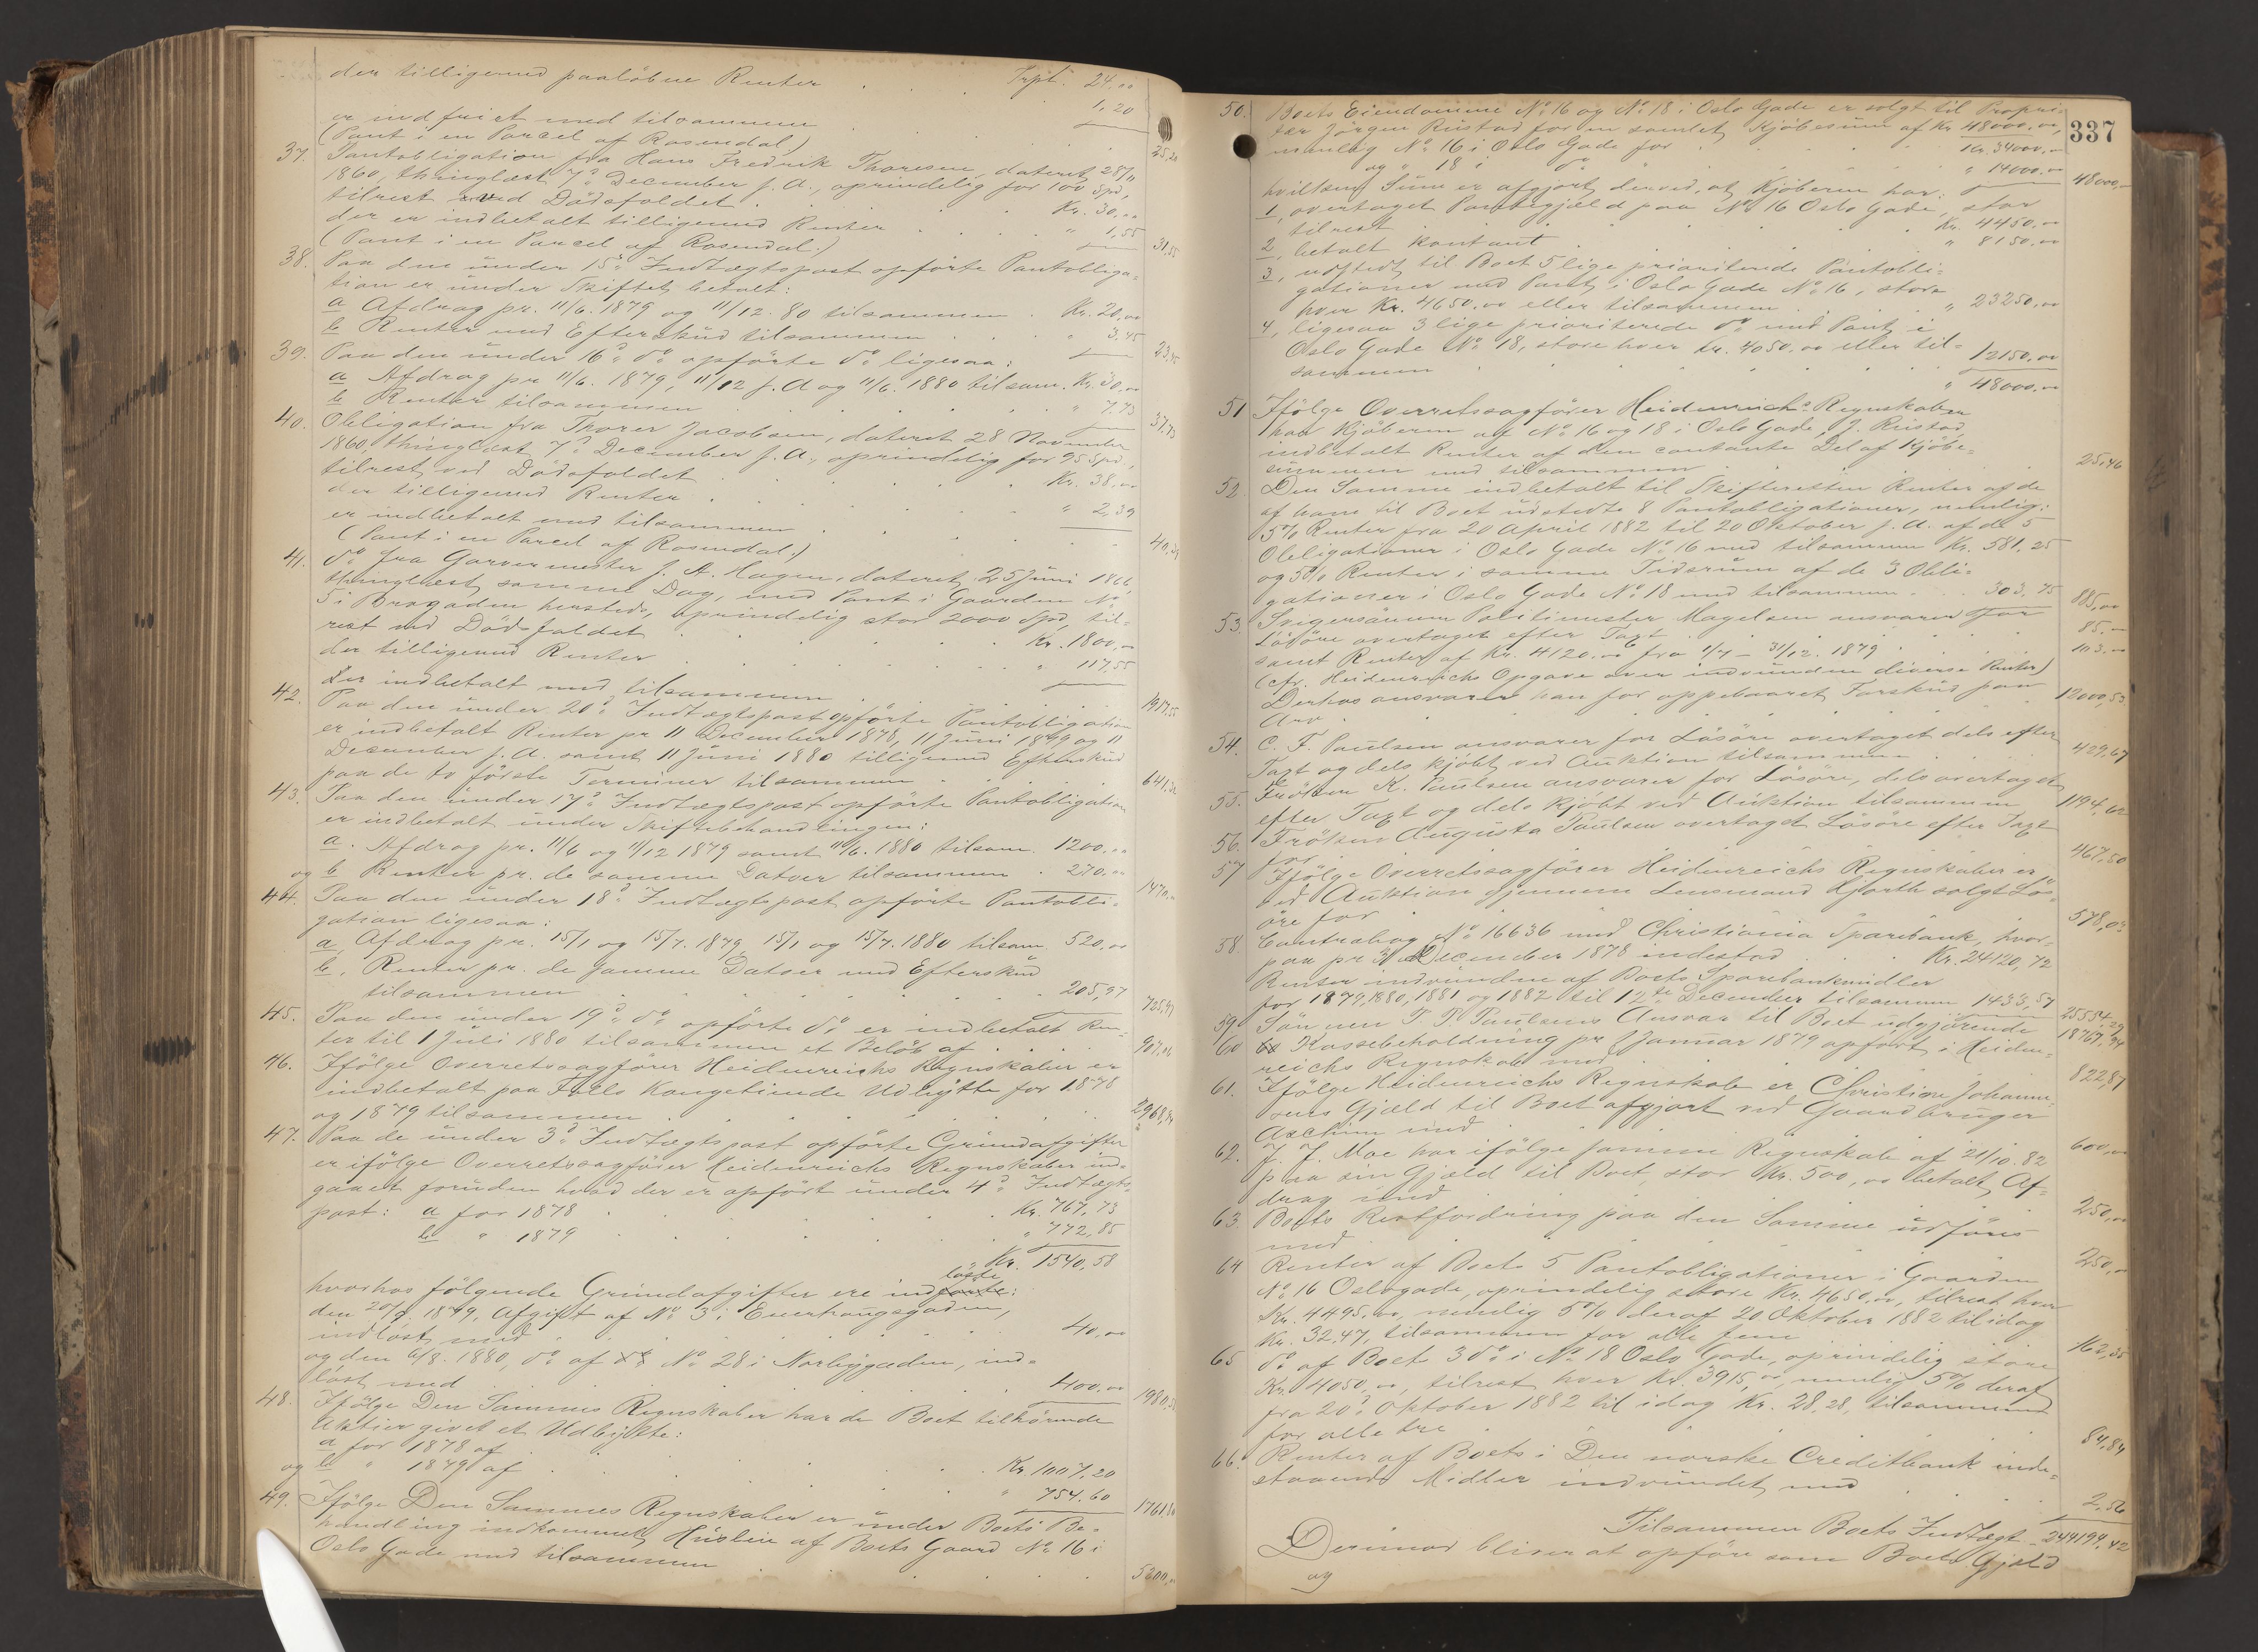 der tilligemed paalöbne Renter . . Trpt. 24,00
1,20
er indfriet med tilsammen . . . 25,20
(Pant i en Parcel af Rosendal)
37. Pantobligation fra Hans Fredrik Thoresen, dateret 28/11
1860, thinglæst 7d. December s. A., oprindelig for 100 Spd,
tilrest ved Dödsfaldet . . . Kr. 30,00
der er indbetalt tilligemed Renter . . . " 1,55
(Pant i en Parcel af Rosendal.) 31,55
38. Paa den under 15d. Indtægtspost opförte Pantobliga=
tion er under Skiftet betalt:
a Afdrag pr. 11/6. 1879 og 11/12. 80 tilsammen . Kr. 20,00
b Renter med Efterskud tilsammen . . . " 3.45
23,45
39. Paa den under 16d. do opförte do ligesaa:
a Afdrag pr 11/6. 1879, 11/12 s. A og 11/6. 1880 tilsam. Kr. 30,00
b Renter tilsammen . . . " 7.73
37,73
40. Obligation fra Thorer Jacobsen, dateret 28 November
1860, thinglæst 7d. December s. A., oprindelig for 95 Spd.,
tilrest ved Dödsfaldet . . . Kr. 38.00
der tilligemed Renter . . . " 2,39
er indbetalt med tilsammen . . . 40,39
(Pant i en Parcel af Rosendal.)
41. do fra Garvermester J. A. Hagen, dateret 25 Juni 1866
thinglæst samme Dag, med Pant i Gaarden No
5 i Brogaden hersteds, oprindelig stor 2000 Spd, til=
rest ved Dödsfaldet . . . Kr. 1800,00
der tilligemed Renter . . . " 117,55
er indbetalt med tilsammen . . . 1917,55
42. Paa den under 20d. Indtægtspost opförte Pantobligation
er indbetalt Renter pr 11 December 1878, 11 Juni 1879 og 11
December s. A. samt 11 Juni 1880 tilligemed Efterskud
paa de to förste Terminer tilsammen . . .
43. Paa den under 17d. Indtægtspost opförte Pantobligation
er indbetalt under Skiftebehandlingen:
a. Afdrag pr. 11/6 og 11/12 1879 samt 11/6. 1880 tilsam. 1200,00
og b Renter pr. de samme Datoer tilsammen . 270,00
1470,00
44. Paa den under 18d. Indtægtspost opförte Pantobli=
gation ligesaa:
a, Afdrag pr. 15/1 og 15/7. 1879, 15/1 og 15/7. 1880 tilsam. 520,00
b, Renter pr. de samme Datoer med Efterskud
tilsammen . . . 205,97
725,97
45. Paa den under 19d. do opförte do er indbetalt Ren=
ter til 1 Juli 1880 tilsammen et Beløb af . . .
46. Ifölge Overretssagförer Heidenreichs Regnskaber er
indbetalt paa Follo Kongetiende Udbytte for 1878
og 1879 tilsammen . . .
47. Paa de under 3d. Indtægtspost opförte Grundafgifter
er ifölge Overretssagförer Heidenreichs Regnskaber ind=
gaaet foruden hvad der er opfört under 4d. Indtægts=
post: a for 1878 . . . Kr. 767.73
b " 1879 . . . " 772,85
" Kr. 1540,58
hvorhos fölgende Grundafgifter ere indløste:
den 20/9. 1879, Afgift af No 3 i Enerhaugsgaden,
indlöst med . . . 40,00
og den 6/8. 1880, do af No 28 i Norbygaden, ind=
löst med . . . 400.00
1980,58
48. Ifölge Den Sammes Regnskaber har de Boet tilhörende
Aktier givet et Udbytte:
a for 1878 af . . . Kr. 1007,20
og b " 1879 af . . . " 754.60
1761.80
49. Ifölge Den Sammes Regnskaber er under Boets Be=
handling indkommet Husleie af Boets Gaard No 16 i
Oslo Gade med tilsammen . . . 5200,00
337
50. Boets Eiendomme No 16 og No 18 i Oslo Gade er solgt til Propri=
tær Jörgen Rustad for en samlet Kjöbesum af Kr 48000.00,
nemlig No 16 i Oslo Gade for . . . Kr. 34000,00
og " 18 i do . . . " 14000.00
48000,00
hvilken Sum er afgjort derved, at Kjöberen har:
1, overtaget Pantegjæld paa No 16 Oslo Gade, stor
tilrest . . . Kr. 4450.00
2, betalt kontant . . . " 8150.00
3, udstedt til Boet 5 lige prioriterede Pantobli=
gationer med Pant i Oslo Gade No 16, store
hver Kr. 4650.00 eller tilsammen . . . " 23250,00
4, ligesaa 3 lige prioriterede do med Pant i
Oslo Gade No 18, store hver Kr. 4050,00 eller til=
sammen . . . 12150,00
" 48000.00
51 Ifölge Overretssagförer Heidenreichs Regnskaber
har Kjöberen af No 16 og 18 i Oslo Gade, J. Rustad
indbetalt Renter af den contante Del af Kjöbe=
summen med tilsammen . . . 25,46
52. Den Samme indbetalt til Skifteretten Renter af de
af ham til Boet udstedte 8 Pantobligationer, nemlig:
5% Renter fra 20 April 1882 til 20 Oktober s. A. af de 5
Obligationer i Oslo Gade No 16 med tilsammen Kr. 581,25
og 5% Renter i samme Tidsrum af de 3 Obli=
gationer i Oslo Gade No 18 med tilsammen . . 303,75
885,00
53. Svigersönnen Politimester Magelsen ansvarer for
Lösöre overtaget efter Taxt . . . 85.00
samt Renter af Kr. 4120.00 fra 1/7 - 31/12. 1879 . . 103.00
(cfr. Heidenreichs Opgave over indvundne diverse Renter)
Derhos ansvarer han for oppebaaret Forskud paa
Arv . . . 12000,53
54. C. F. Paulsen ansvarer for Lösöre overtaget dels efter
Taxt og dels kjöbt ved Auktion tilsammen . . 429,67
55. Fröken K. Paulsen ansvarer for Lösöre, dels overtaget
efter Taxt og dels kjöbt ved Auktion tilsammen 1194,62
56. Fröken Augusta Paulsen overtaget Lösöre efter Taxt
for . . . 467,50
57 Ifölge Overretssagförer Heidenreichs Regnskaber er
ved Auktion gjennem Lensmand Hjorth solgt Lös=
öre for . . .
58. Contrabog No 16636 med Christiania Sparebank, hvor=
paa pr 31 December 1878 indestod . . . Kr. 24120,72
Renter indvunden af Boets Sparebankmidler
for 1879, 1880, 1881 og 1882 til 12te December tilsammen 1433,57
25554,29
59. Sönnen T. P. Paulsens Ansvar til Boet udgjörende
60 Kassebeholdning pr 1 Januar 1879 opfört i Heiden=
reichs Regnskab med . . . 822,87
61. Ifölge Heidenreichs Regnskab er Christian Johann=
sens Gjæld til Boet afgjort ved Gaardbruger
Aschim med . . . 600,00
62. J. J. Moe har ifölge samme Regnskab af 21/10. 82
paa sin Gjæld til Boet, stor Kr. 500,00 betalt Af=
drag med . . . 250,00
63. Boets Restfordring paa den Samme udföres
med . . . 250,00
64 Renter af Boets 5 Pantobligationer i Gaarden
No 16 Oslogade, oprindelig store Kr. 4650.00, tilrest hver
Kr. 4495.00, nemlig 5% deraf 20 Oktober 1882 til idag
Kr. 32.47, tilsammen for alle fem . . . 162,35
65 do af Boets 3 do i No 18 Oslo Gade, oprindelig store
Kr. 4050,00, tilrest hver Kr. 3915,00, nemlig 5% deraf
fra 20d. Oktober 1882 til idag Kr. 28,28, tilsammen
for alle tre . . . 84,84
66. Renter af Boets i Den norske Creditbank inde=
staaende Midler indvundet med . . . 2,56
Tilsammen Boets Indtægt 244194,42
Derimod bliver at opföre som Boets Gjæld
og